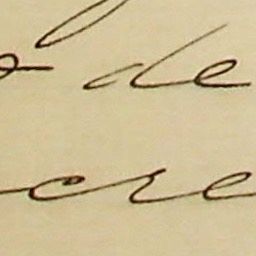 de
cre